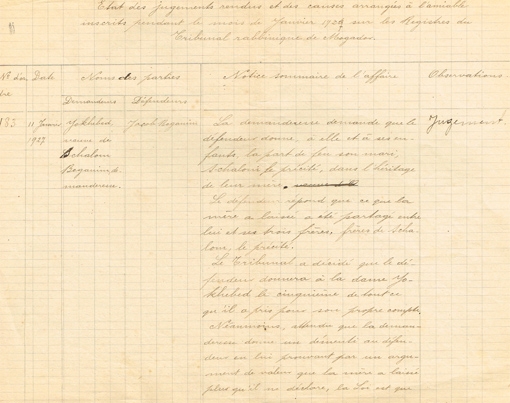 Etat des Jugements rendus et des causes arrangées à l'amiable
inscrits pendant le mois de Janvier 1927 sur les Registres du
Tribunal rabbinique de Mogador.
Date Noms des parties Notice sommaire de l'affaire Observations
Demandeurs Défendeurs
183 11 Janvier Yokhebed Jacob Bogarim La demanderesse demande que le Jugement.
1927 veuve de défendeur donne, à elle et à ses en-
Schalom fants, la part de feu son mari,
Schalom, le précité, dans l'héritage
manderesse. de leur mère.
Le défendeur répond que ce que la
mère a laissé a été partagé entre
lui et ses trois frères, frères de Scha-
lom, le précité.
Le Tribunal a décidé que le dé-
fendeur donnera à la dame Yo-
khebed le cinquième de tout ce
qu'il a pris pour son propre compte.
Néanmoins, attendu que la deman-
deresse donne un démenti au défen-
deur en lui prouvant par un argu-
ment de valeur que la mère a laissé
plus qu'il ne déclare, la Loi est que